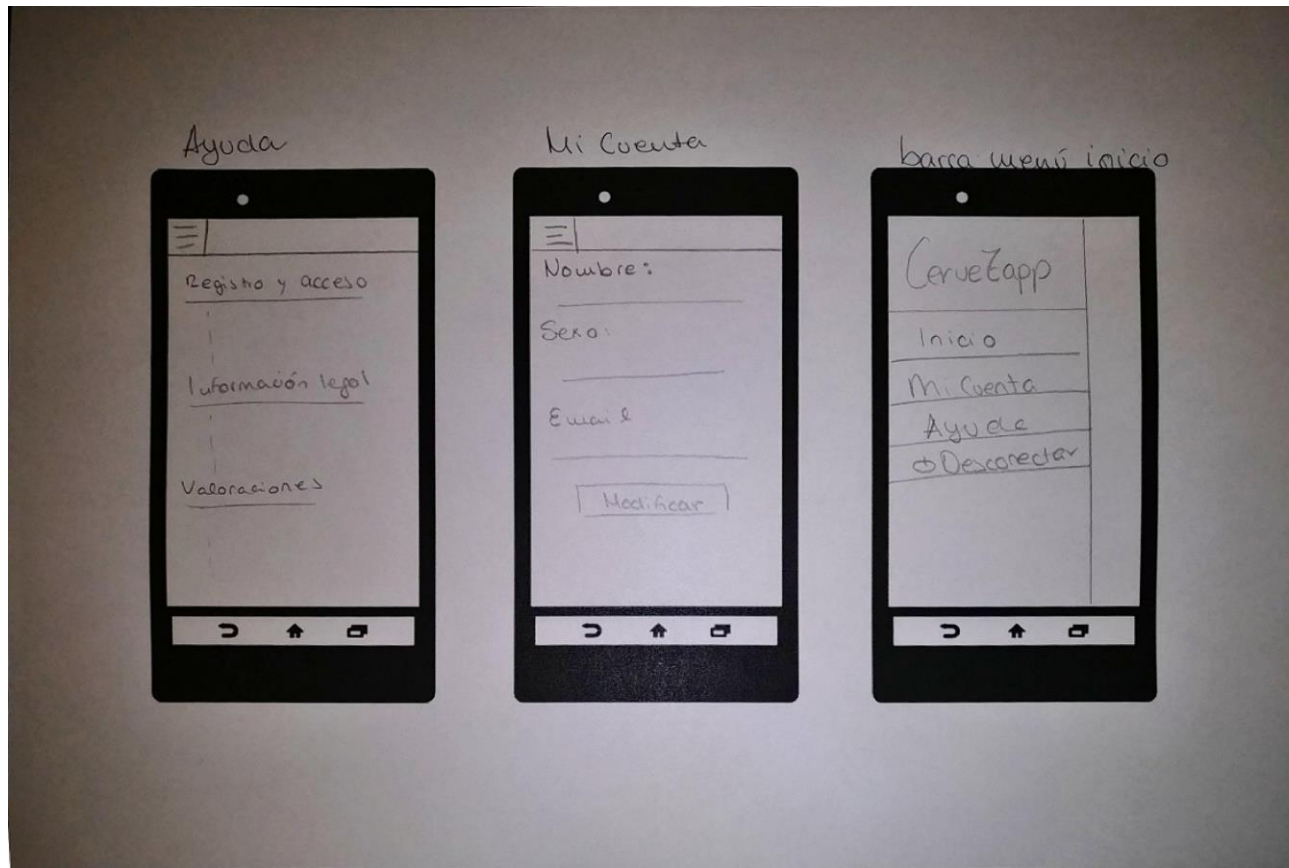 Ayuda
Registro y acceso
Información legal
Valoraciones
Mi Cuenta
Nombre:
Sexo:
Email
Modificar
barra menú inicio
CerveZapp
Inicio
Mi Cuenta
Ayuda
Desconectar